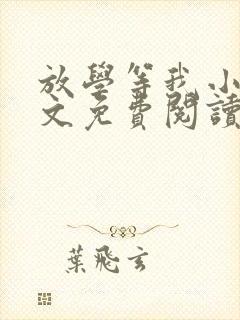 放學等我 小
文免費閱讀
葉飛玄